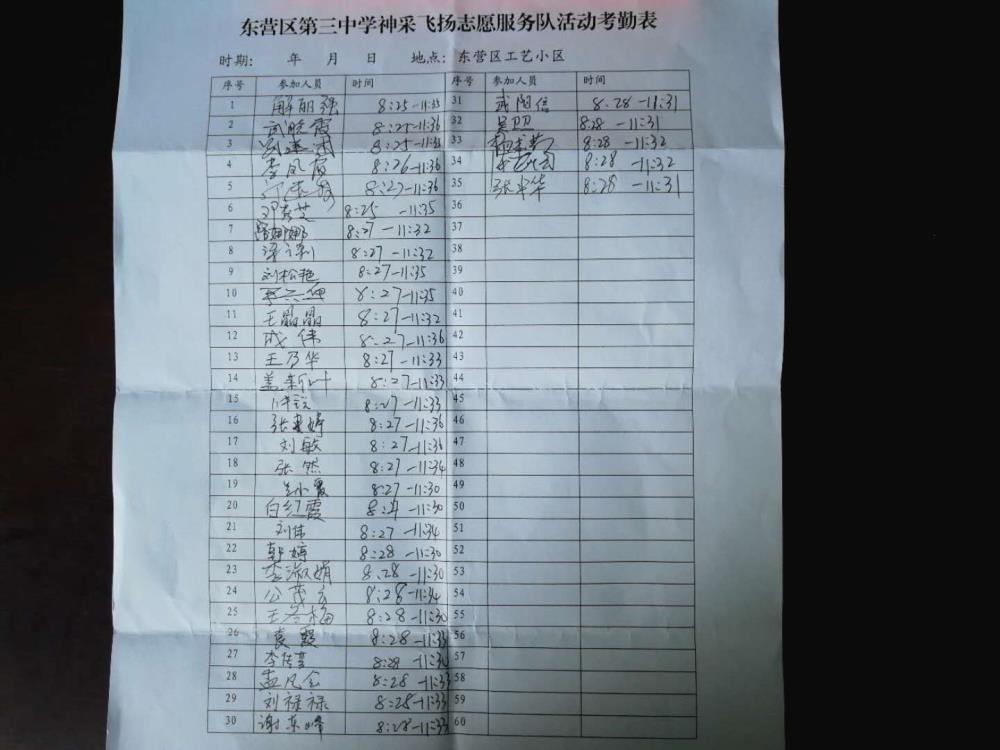 东营区第三中学神采飞扬志愿服务队活动考勤表
时期: 年 月 日 地点: 东营区工艺小区
序号 参加人员 时间 序号 参加人员 时间
1 解丽强 8:25-11:35 31 武阳信 8:28-11:31
2 武晓霞 8:25-11:36 32 吴照 8:28-11:31
3 8:25-11:33 33 8:28-11:32
4 李凤霞 8:26-11:36 34 8:28-11:32
5 8:27-11:36 35 张中华 8:28-11:31
6 邓春芝 8:25-11:35 36
7 娜娜 8:27-11:32 37
8 8:27-11:32 38
9 刘松艳 8:27-11:35 39
10 8:27-11:35 40
11 王晶晶 8:27-11:32 41
12 成伟 8:27-11:36 42
13 王乃华 8:27-11:33 43
14 盖新叶 8:27-11:33 44
15 8:27-11:33 45
16 张婷 8:27-11:36 46
17 刘敏 8:27-11:36 47
18 张然 8:27-11:34 48
19 小霞 8:27-11:30 49
20 白红霞 11:30 50
21 刘伟 8:27-11:34 51
22 韩婷 8:28-11:30 52
23 李淑娟 8:28-11:30 53
24 8:28-11:34 54
25 王冬梅 8:28-11:30 55
26 袁霞 8:28-11:33 56
27 8:28-11:30 57
28 孟凡会 8:28-11:33 58
29 刘禄禄 8:28-11:33 59
30 谢东峰 8:28-11:33 60